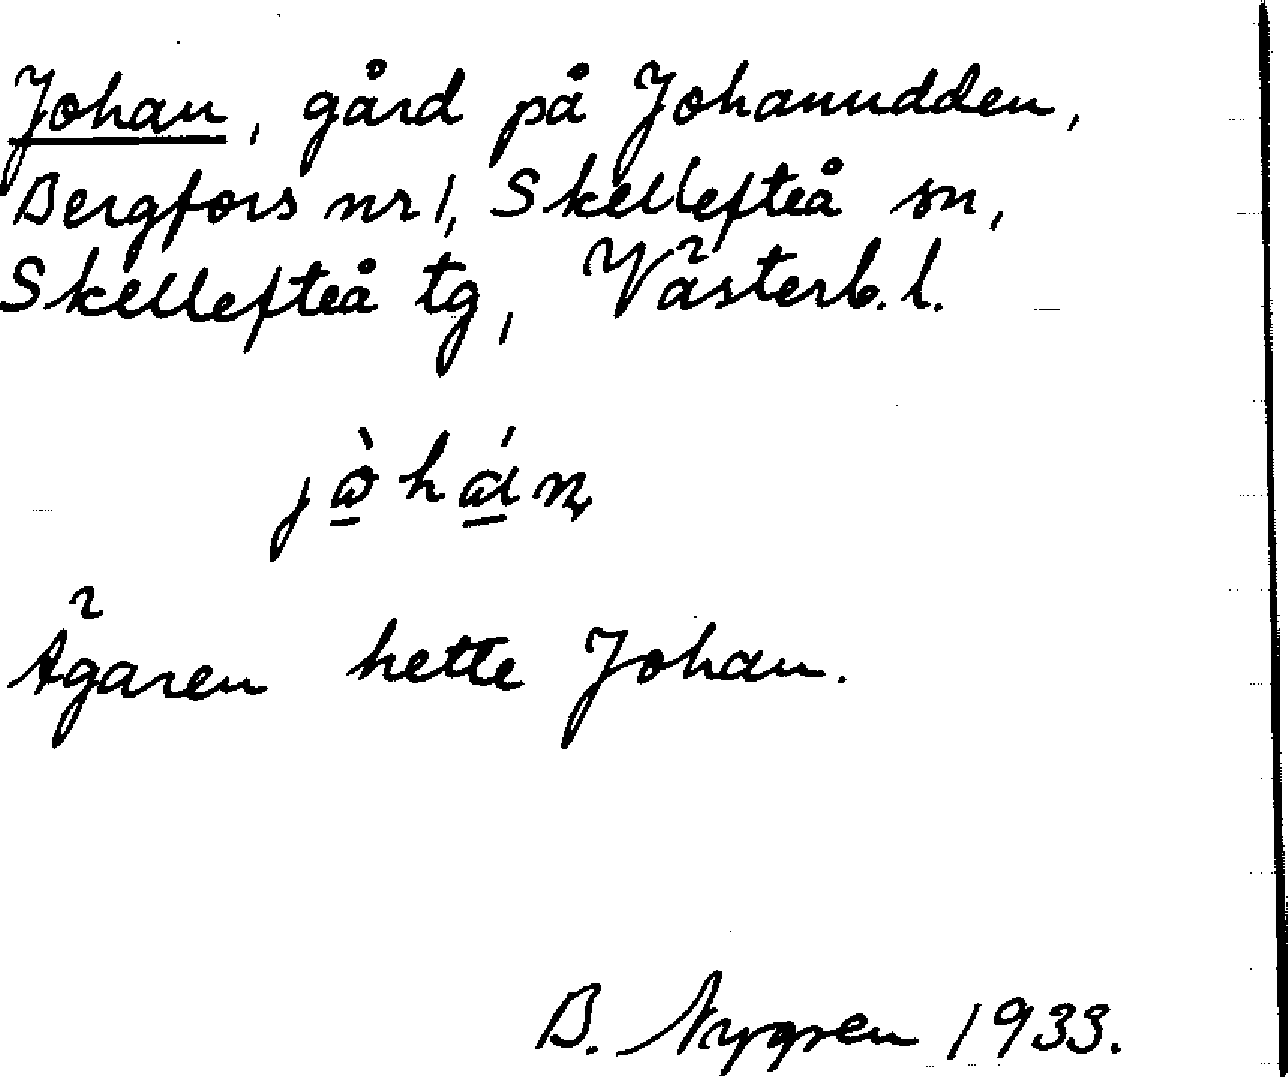 Johan, gård på Johanudden,
Bergfors nr 1, Skellefteå sn,
Skellefteå tg, Västerb. l.
Ägaren hette Johan.
B. Nygren 1933.